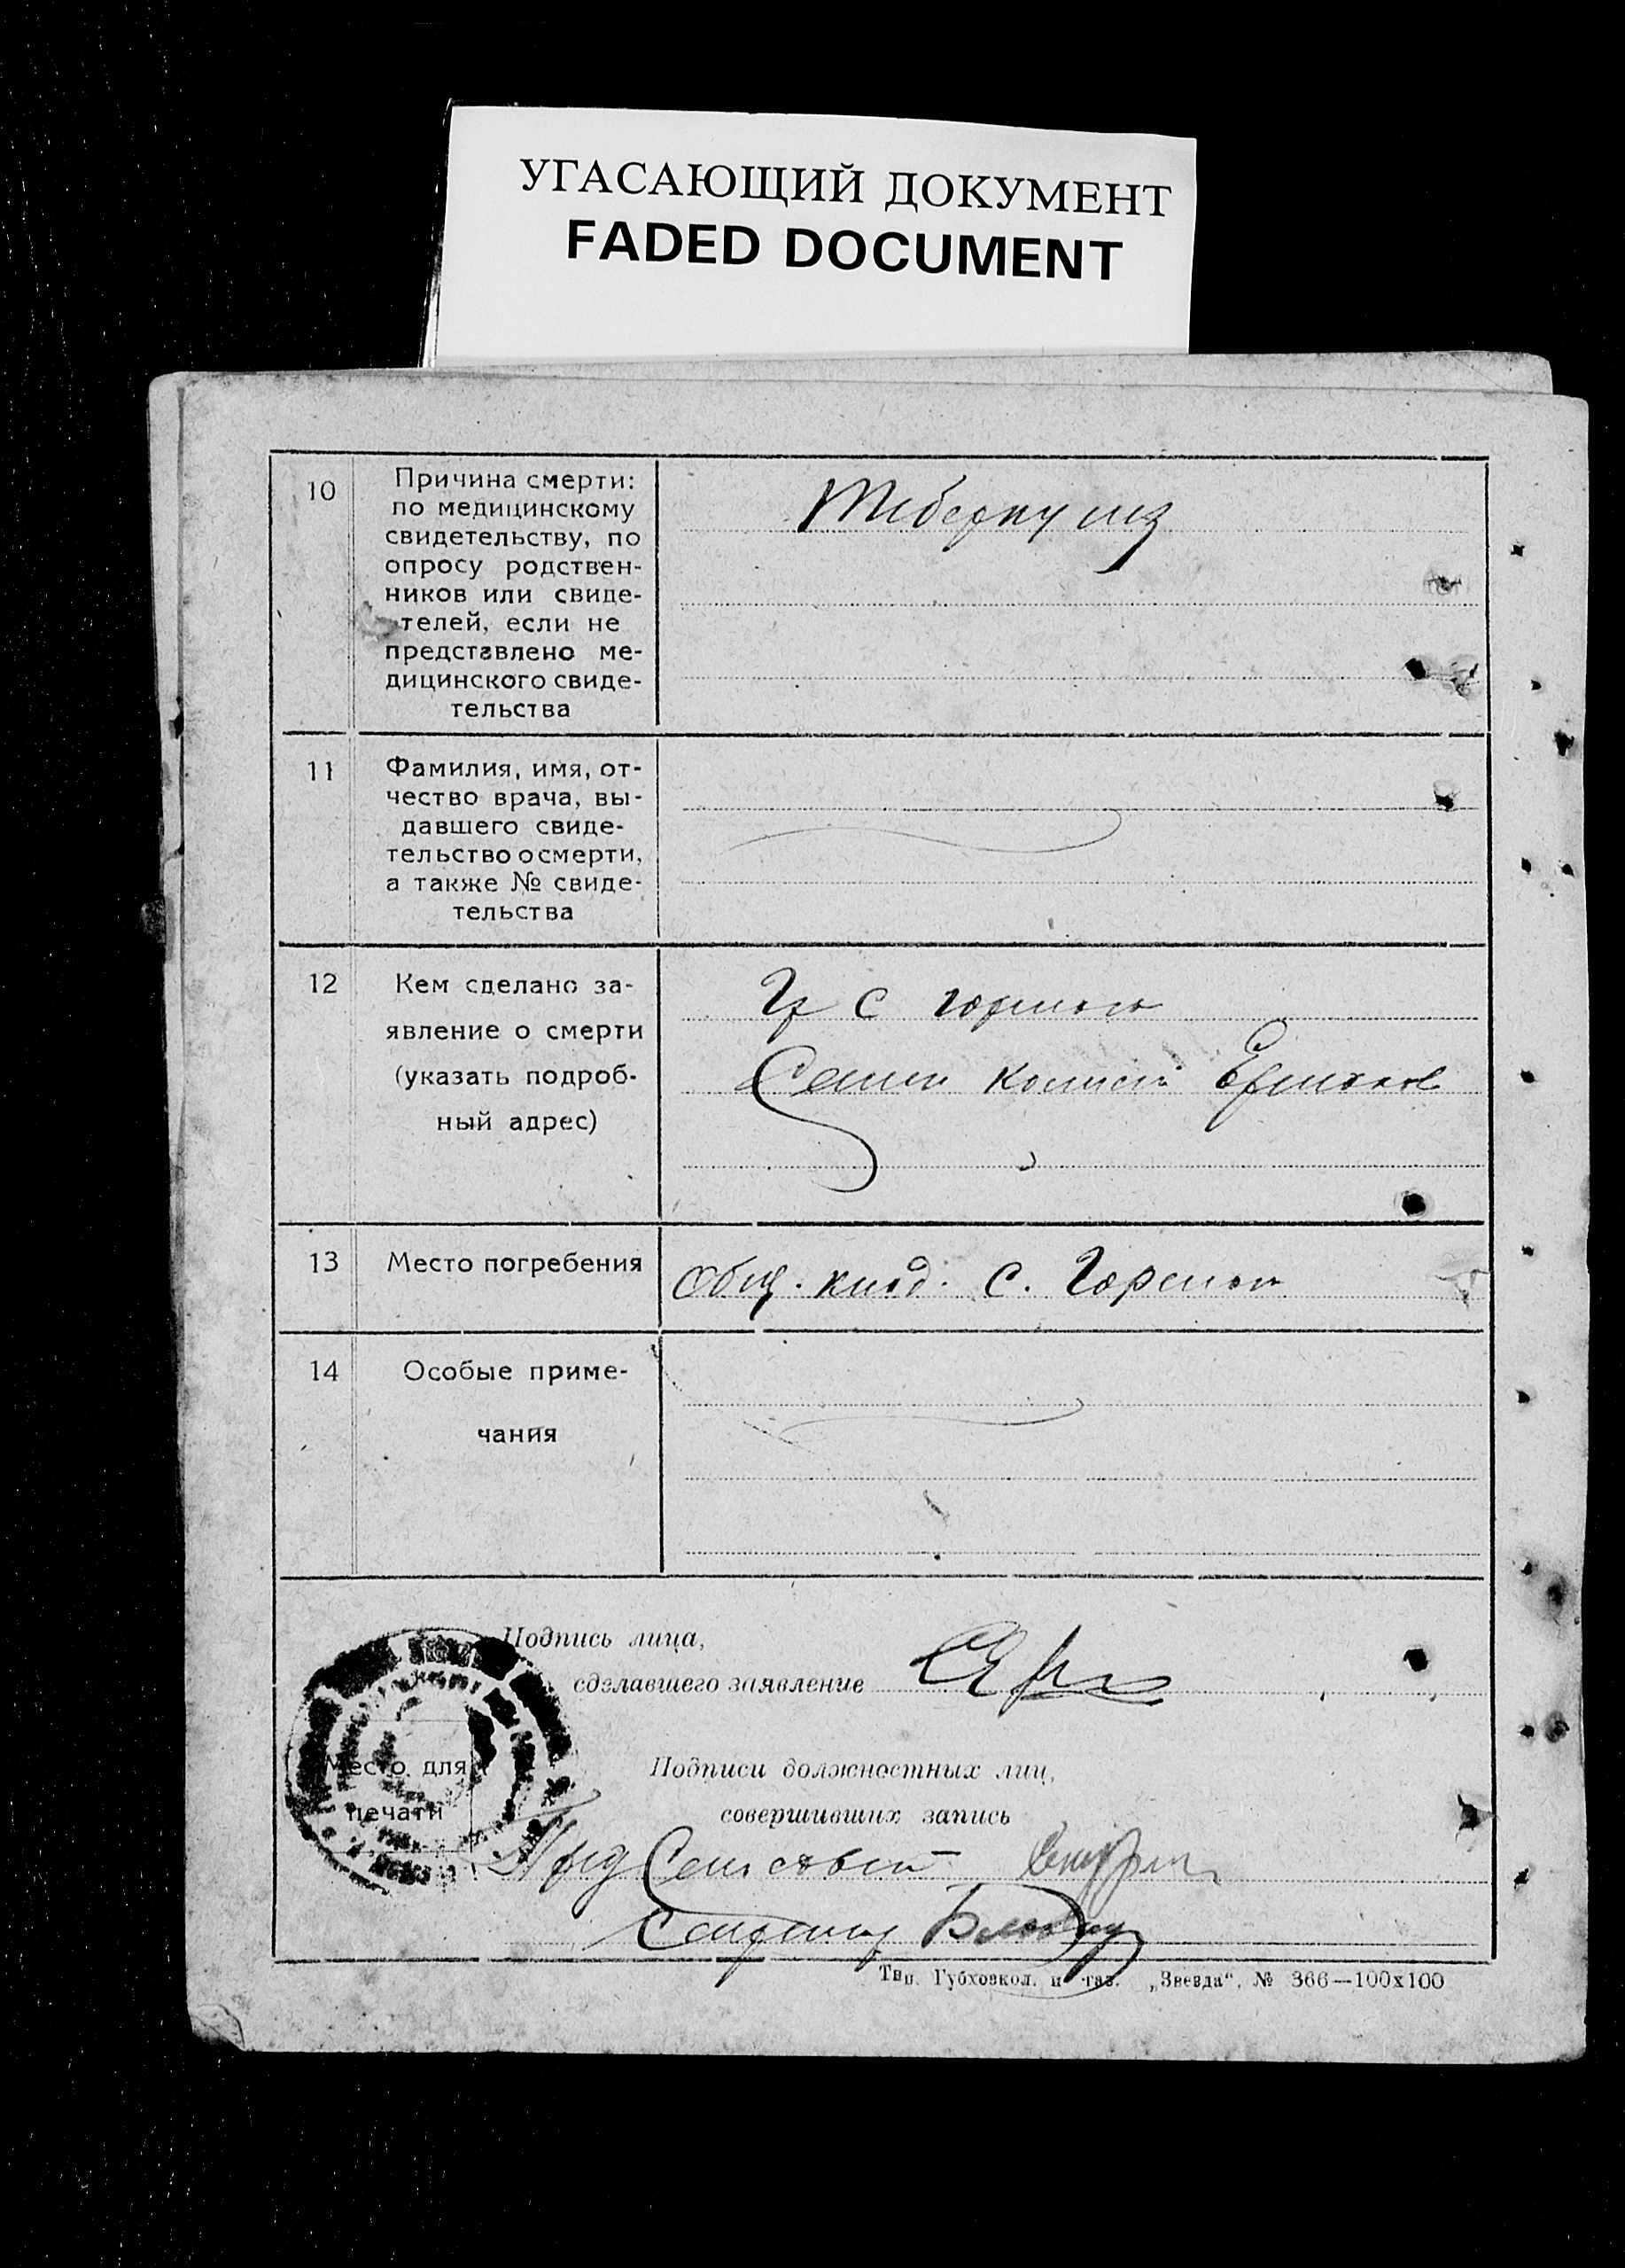 УГАСАЮЩИЙ ДОКУМЕНТ
FADED DOCUMENT
10
Причина смерти:
по медицинскому
свидетельству, по
опросу родствен-
ников или свиде-
телей, если не
представлено ме-
дицинского свиде-
тельства
Тиберкулиз
11
Фамилия, имя, от-
чество врача, вы-
давшего свиде-
тельство о смерти,
а также № свиде-
тельства
12
Кем сделано за-
явление о смерти
(указать подроб-
ный адрес)
Гр с
13
Место погребения
Общ. клад. с.
14
Особые приме-
чания
Подпись лица,
сделавшего заявление
Место для
печати
Подписи должностных лиц,
совершивших запись
Пред Сельсовет
Тип. Губховкол. и газ. „Звезда“. № 366—100х100